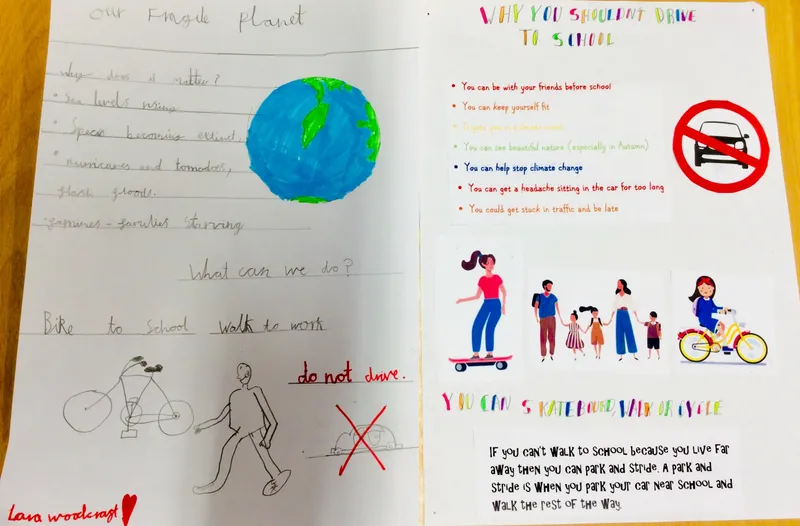 our Fragile planet
why does it matter?
• Sea levels rising
• Species becoming extinct
• hurricanes and tornadoes,
flash floods.
famines - families starving
What can we do?
Bike to School walk to work
do not drive.
Lara woodcraft
WHY YOU SHOULDN'T DRIVE
TO SCHOOL
• You can be with your friends before school
• You can keep yourself fit
• You can see beautiful nature (especially in Autumn)
• You can help stop climate change
• You can get a headache sitting in the car for too long
• You could get stuck in traffic and be late
YOU CAN SKATEBOARD, WALK OR CYCLE
IF YOU CAN'T WALK TO SCHOOL BECAUSE YOU LIVE FAR
AWAY THEN YOU CAN PARK AND STRIDE. A PARK AND
STRIDE IS WHEN YOU PARK YOUR CAR NEAR SCHOOL AND
WALK THE REST OF THE WAY.